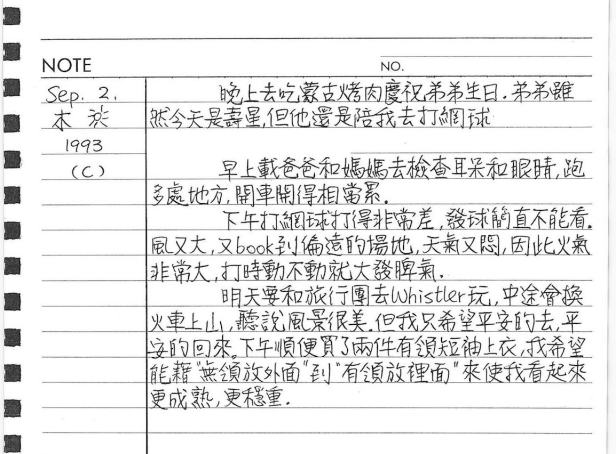 NOTE NO.
Sep. 2, 晚上去吃蒙古烤肉慶祝弟弟生日.弟弟雖
木 於 然今天是壽星,但他還是陪我去打網球
1993
(C) 早上載爸爸和媽媽去檢查耳朵和眼睛,跑
多處地方,開車開得相當累.
下午打網球打得非常差,發球簡直不能看.
風又大,又book到偏遠的場地,天氣又悶,因此火氣
非常大,打時動不動就大發脾氣.
明天要和旅行團去Whistler玩,中途會換
火車上山,聽說風景很美.但我只希望平安的去,平
安的回來。下午順便買了兩件有領短袖上衣,我希望
能藉"無領放外面"到"有領放裡面"來使我看起來
更成熟,更穩重.